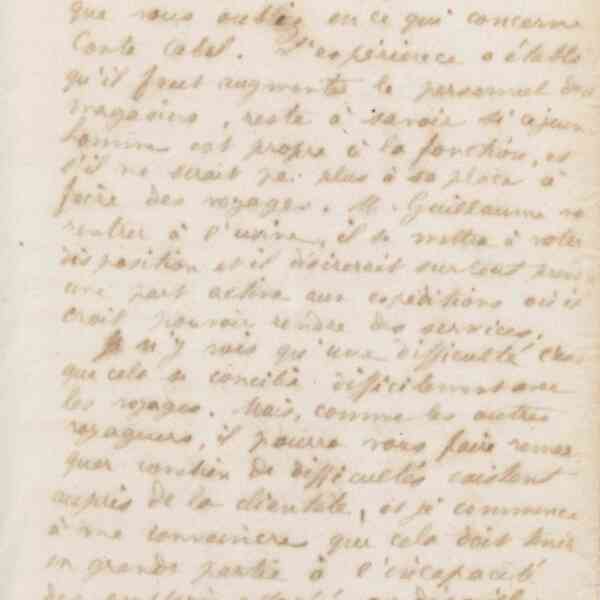 que vous oubliez en ce qui concerne
Conte Cabel. L'expérience a établi
qu'il faut augmenter le personnel des
magasins, reste à savoir si ce jeune
homme est propre à la fonction, et
s'il ne serait pas plus à sa place à
faire des voyages. M. Guillaume va
rentrer à l'usine, il se mettra à votre
disposition et il désirerait surtout prendre
une part active aux expéditions où il
croit pouvoir rendre des services.
Je n'y vois qu'une difficulté c'est
que cela se concilie difficilement avec
les voyages. Mais, comme les autres
voyageurs, il pourra nous faire remar
quer combien de difficultés existent
auprès de la clientèle, et je commence
à me convaincre que cela doit tenir
en grande partie à l'incapacité
des